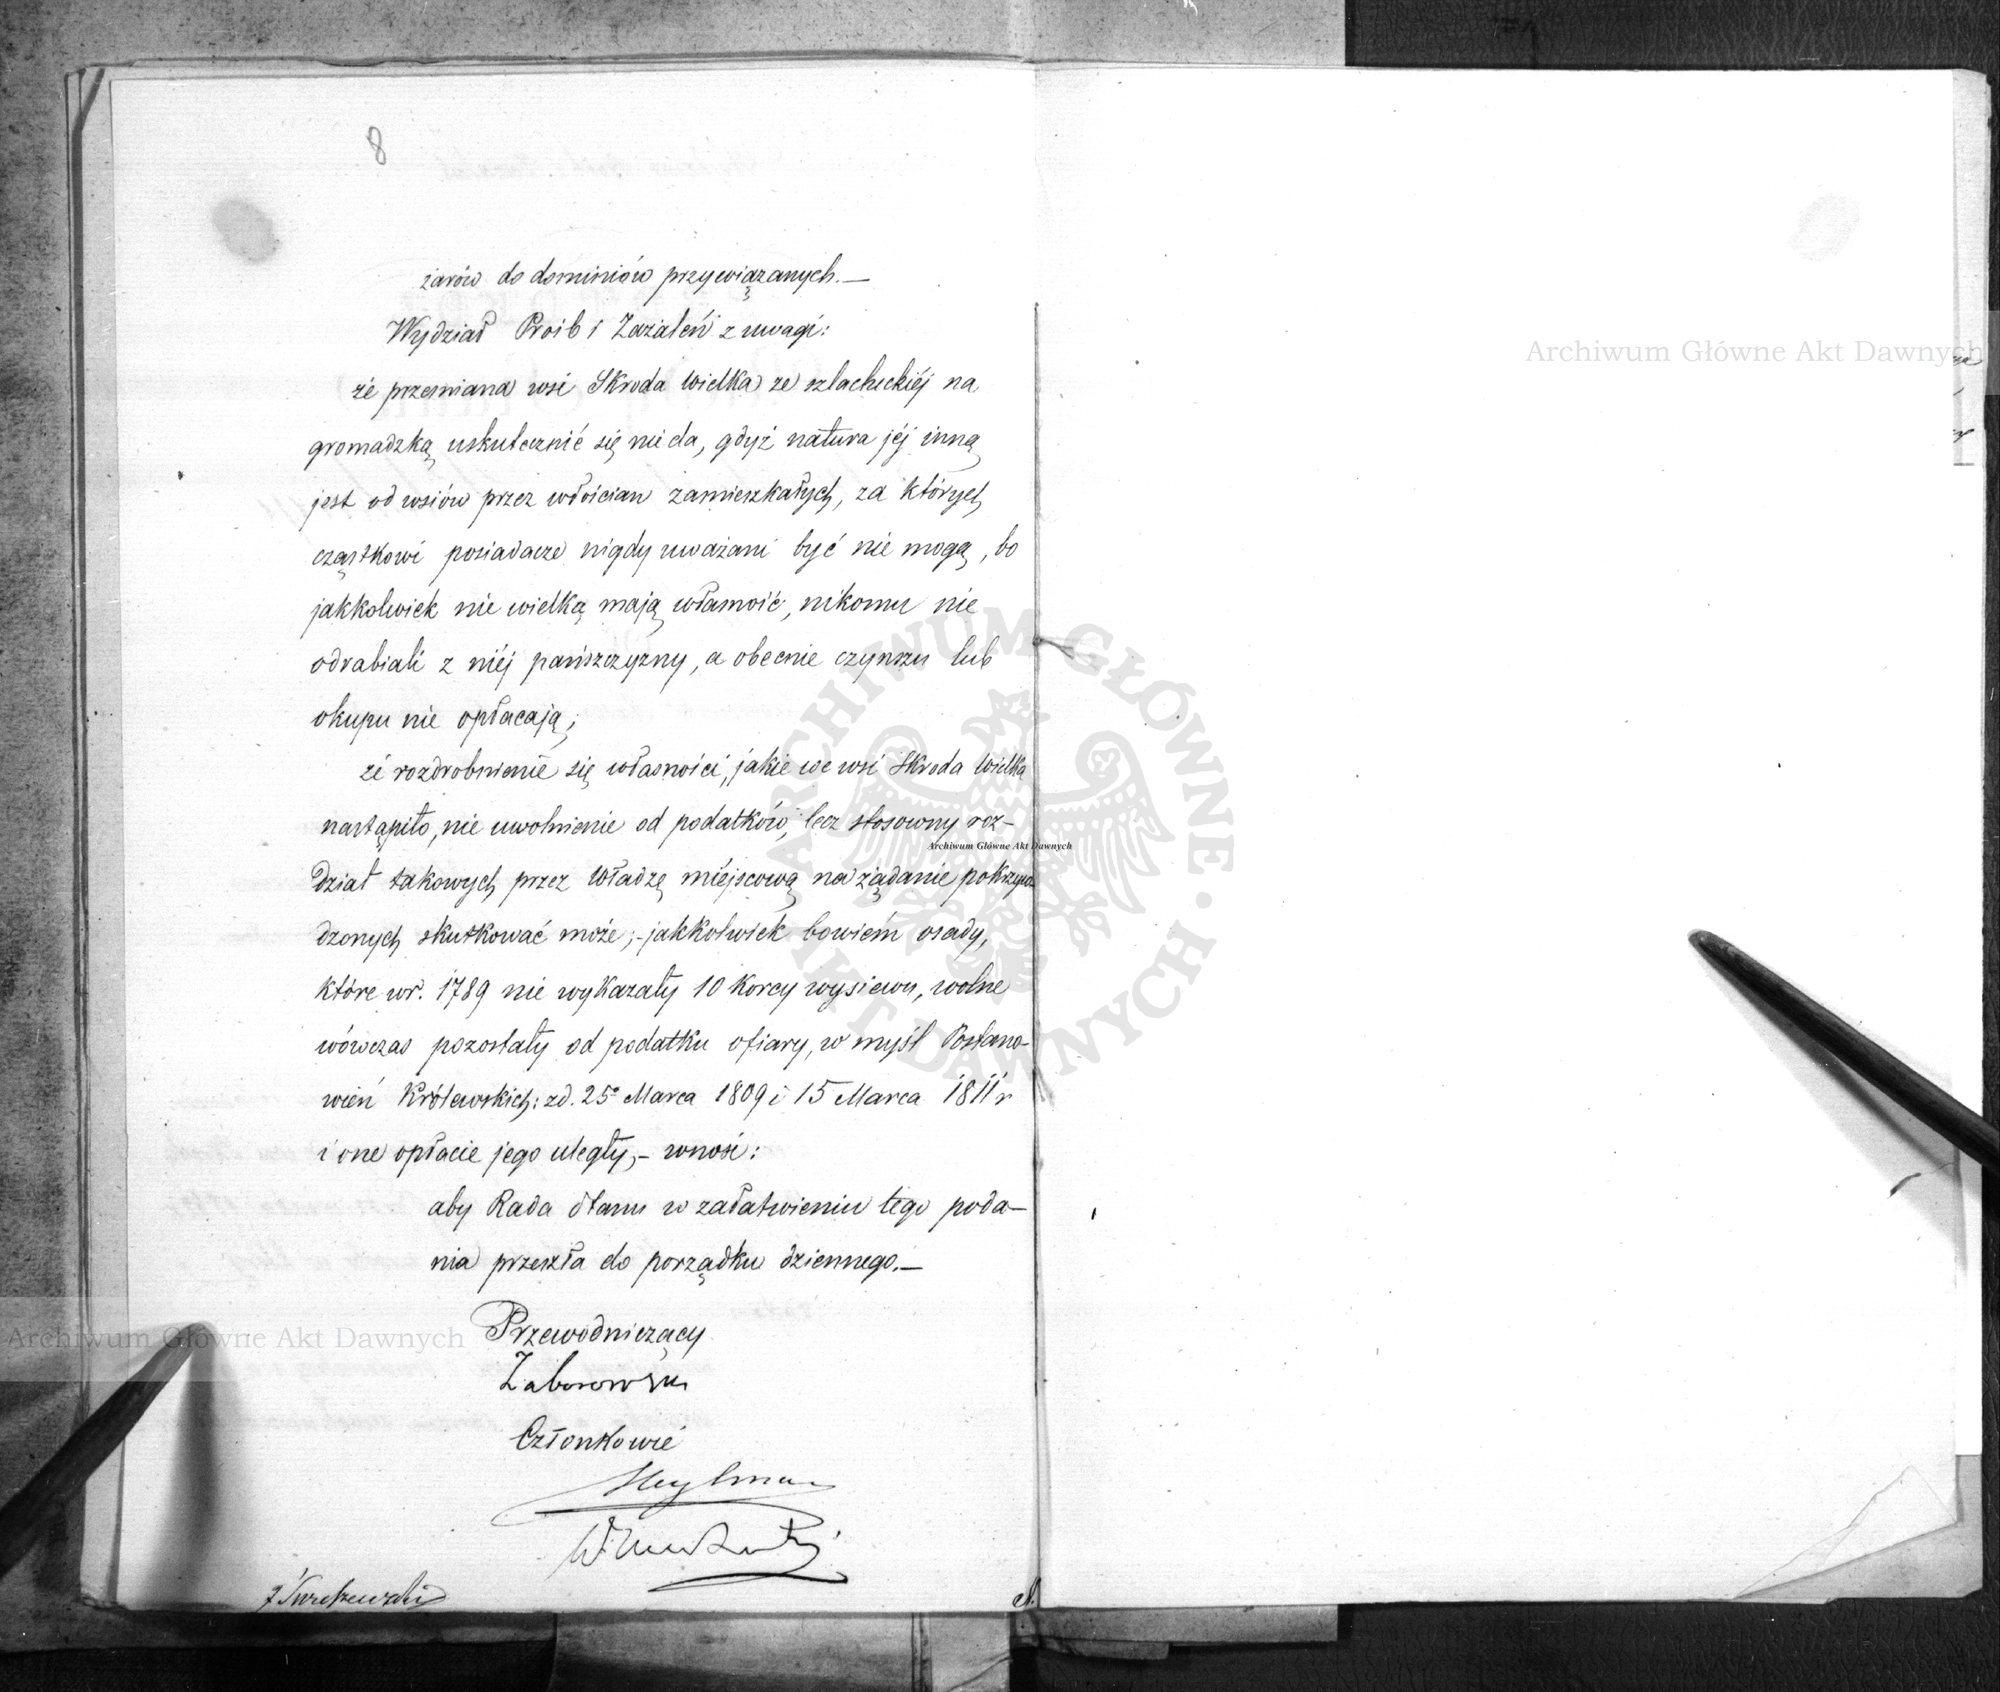 8
żarów do dominiów przywiązanych.—
Wydział Prośb i Zażaleń z uwagi:
że przemiana wsi Skroda Wielka ze szlacheckiéj na
gromadzką uskutecznić się nie da, gdyż natura jéj inną
jest od wsiów przez włościan zamieszkałych, za których
cząstkowi posiadacze nigdy uważani być nie mogą, bo
jakkolwiek nie wielką mają własność, nikomu nie
odrabiali z niéj pańszczyzny, a obecnie czynszu lub
okupu nie opłacają;
że rozdrobnienie się własności, jakie we wsi Skroda Wielka
nastąpiło, nie uwolnienie od podatków, lecz stosowny roz-
dział takowych przez Władzę miéjscową na żądanie pokrzyw-
dzonych skutkować może; - jakkolwiek bowiem osady,
które w r. 1789 nie wykazały 10 korcy wysiewu, wolne
wówczas pozostały od podatku ofiary, w myśl Postano-
wień Królewskich: z d. 25 Marca 1809 i 15 Marca 1811 r
i one opłacie jego uległy, - wnosi:
aby Rada Stanu w załatwieniu tego poda-
nia przeszła do porządku dziennego.—
Przewodniczący
Zaborowski
Członkowie
Heylman
Archiwum Główne Akt Dawnych
Archiwum Główne Akt Dawnych
Archiwum Główne Akt Dawnych
ARCHIWUM GŁÓWNE AKT DAWNYCH